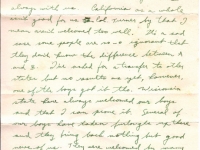 always with us. California as a whole
isn't good for us Col. Turner by that I
mean aren't welcomed too well. It's a sad
case some people are so ignorant that
they don't know the difference between A
and B. I've asked for a transfer to other
states but we soldiers no yet, however,
one of the boys got it tho. Wisconsin
state have always welcomed our boys
and that I can prove it. Several of
our boys have taken furloughs there
and they bring back nothing but good
news of us. They are welcomed by many